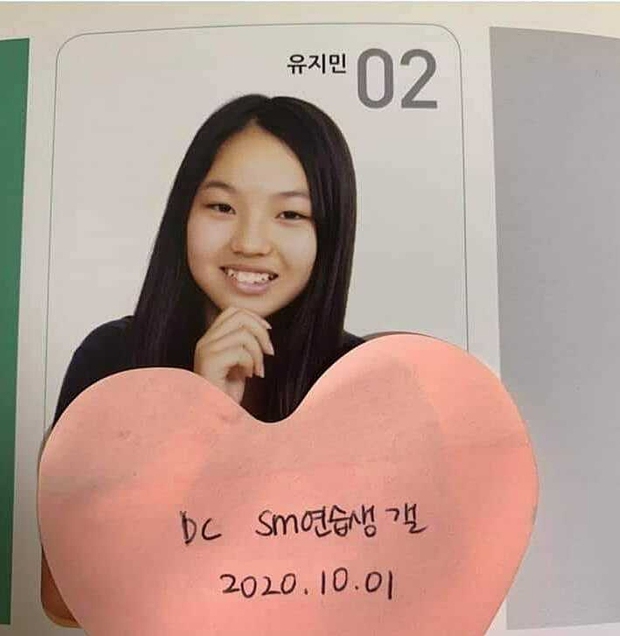 유지민 02
DC SM연습생 갤
2020.10.01